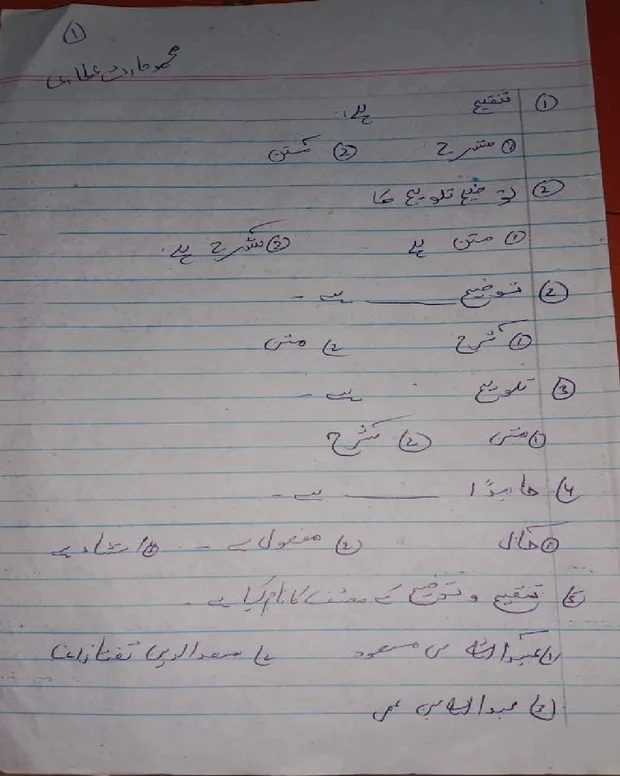 ①
محمد حارث عطاری
① تنقیح ہے۔
① شرح ② متن
② توضیح تلویح کا
① متن ہے ② شرح ہے
② توضیح ____ ہے -
① شرح 2) متن
③ تلویح ہے -
① متن ② شرح
4) حامدًا ____ ہے -
① حال ② مفعول ہے - ③ استثناء ہے
5) تنقیح و توضیح کے مصنف کا نام کیا ہے -
① عبد اللہ بن مسعود 2) سعد الدین تفتازانی
③ عبد اللہ بن